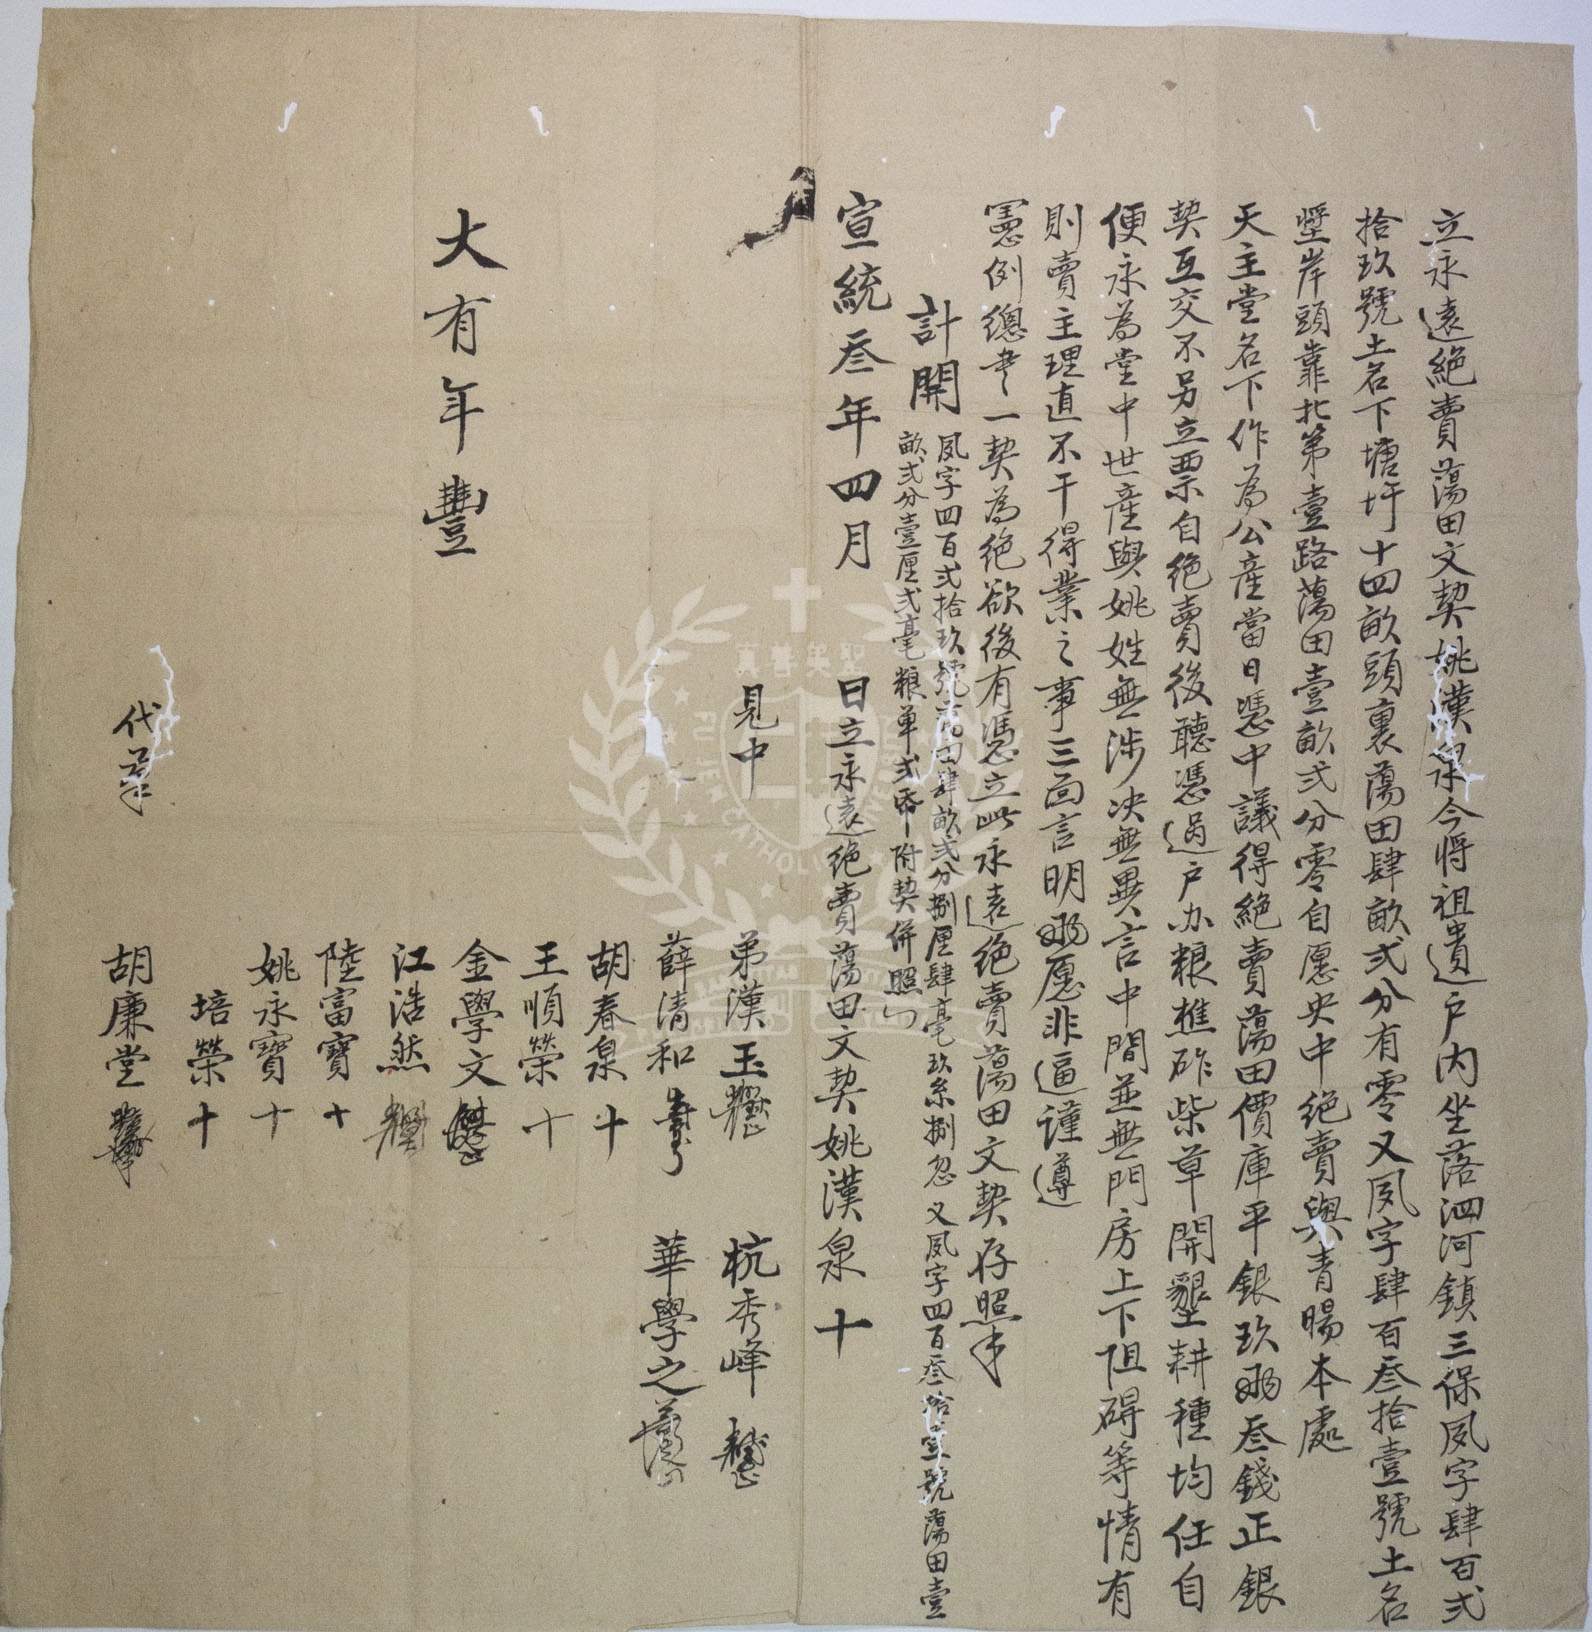 立永遠絕賣蕩田文契姚漢泉今將祖遺戶內坐落泗河鎮三保夙字肆百弍
拾玖號土名下塘圩十四畝頭裏蕩田肆畝弍分有零又夙字肆百叁拾壹號土名
墾岸頭靠北第壹路蕩田壹畝弍分零自愿央中絕賣與青暘本處
天主堂名下作為公產當日憑中議得絕賣蕩田價庫平銀玖兩叁錢正銀
契互交不另立票自絕賣後聽憑過戶办粮樵斫柴草開墾耕種均任自
便永為堂中世產與姚姓無涉决無異言中間並無門房上下阻碍等情有
則賣主理直不干得業之事三面言明兩愿非逼謹遵
憲例總書一契為絕欲後有憑立此永遠絕賣蕩田文契存照
計開 夙字四百弍拾玖號蕩田肆畝弍分捌厘肆毫玖糸捌忽 又夙字四百叁拾壹號蕩田壹
畝弍分壹厘弍毫 粮单弍帋附契併照
宣統叁年四月 日立永遠絕賣蕩田文契姚漢泉 十
見中 弟漢玉 杭秀峰
薛清和 華學之
胡春泉 十
王順榮 十
大有年豐 金學文
江浩然
陸富寶 十
姚永寶 十
培榮 十
代筆 胡廉堂
聖美善真
FU JEN CATHOLIC